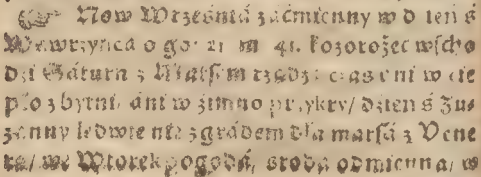 ☞ Now Wrześniá záćmienny w dzień ś
Wawrzyńca o go: 21 m 41. kozorożec wscho
dzi Sáturn z Marsem rządzi czas ani w cie
pło zbytni, áni w źimno przykry/ dzień ś Zu-
zánny ledwie nie z grádem dla marsá z Vene
rą/ we Wtorek pogodá, środá odmienna/ w